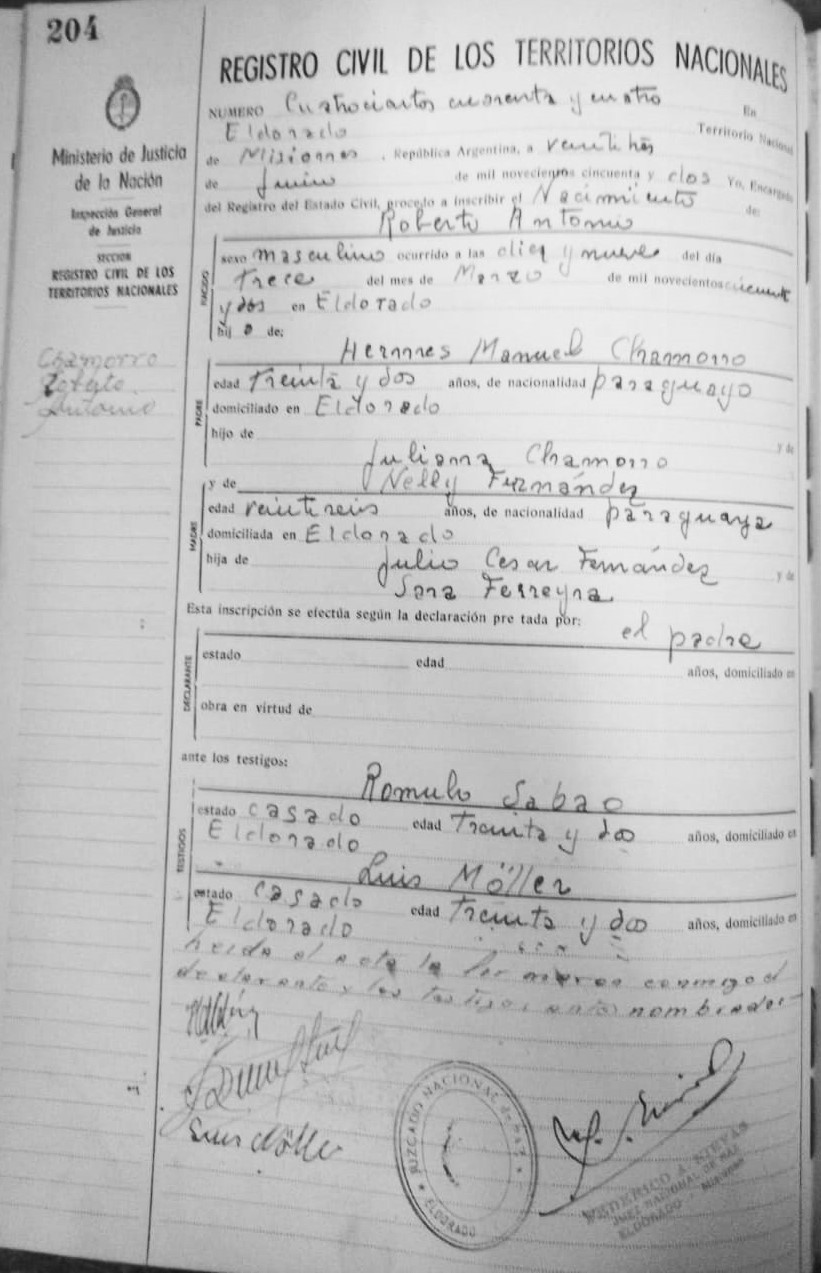 204
Ministerio de Justicia
de la Nación
Inspección General
de Justicia
SECCION
REGISTRO CIVIL DE LOS
TERRITORIOS NACIONALES
Chamorro
Roberto
Antonio
REGISTRO CIVIL DE LOS TERRITORIOS NACIONALES
NUMERO Cuatrocientos cuarenta y cuatro En
Eldorado Territorio Nacional
de Misiones, República Argentina, a veintitrés
de Junio de mil novecientos cincuenta y dos Yo, Encargado
del Registro del Estado Civil, procedo a inscribir el Nacimiento de:
Roberto Antonio
NACIDO
sexo masculino ocurrido a las diez y nueve del día
Trece del mes de Marzo de mil novecientos cincuenta
y dos en Eldorado
hijo de:
Hermes Manuel Chamorro
PADRE
edad Treinta y dos años, de nacionalidad paraguayo
domiciliado en Eldorado
hijo de y de
Juliana Chamorro
y de Nelly Fernández
MADRE
edad veintiseis años, de nacionalidad paraguaya
domiciliada en Eldorado
hija de Julio Cesar Fernández y de
Sara Ferreyra
Esta inscripción se efectúa según la declaración pre tada por:
el padre
DECLARANTE
estado edad años, domiciliado en
obra en virtud de
ante los testigos:
Romulo Sabao
TESTIGOS
estado casado edad Treinta y dos años, domiciliado en
Eldorado
Luis Möller
estado casado edad Treinta y dos años, domiciliado en
Eldorado
Leída el acta la firmaron conmigo el
declarante y los testigos antes nombrados
JUZGADO NACIONAL de PAZ
ELDORADO
FEDERICO A. RIEVAS
JUEZ NACIONAL DE PAZ
ELDORADO - Misiones